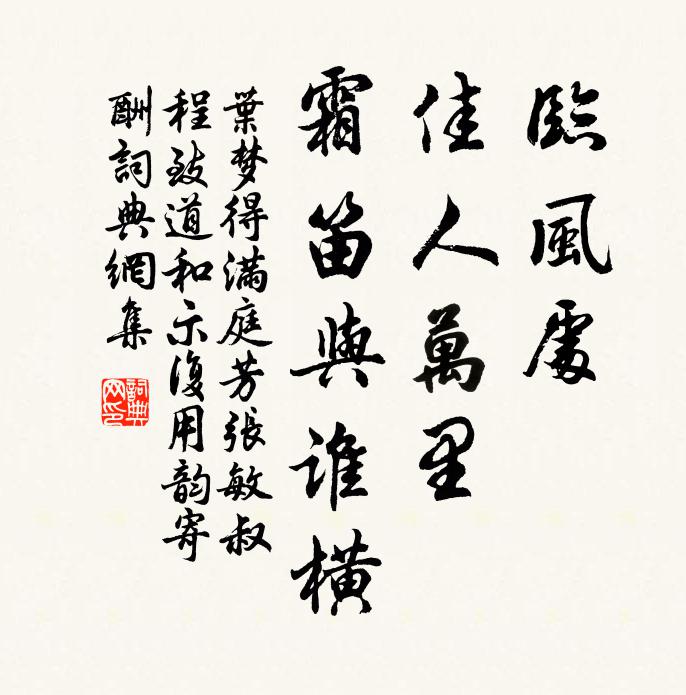 臨風處
佳人萬里
霜笛與誰橫
葉梦得滿庭芳張敏叔
程致道和示復用韵寄
酬詞典網集
詞典网印